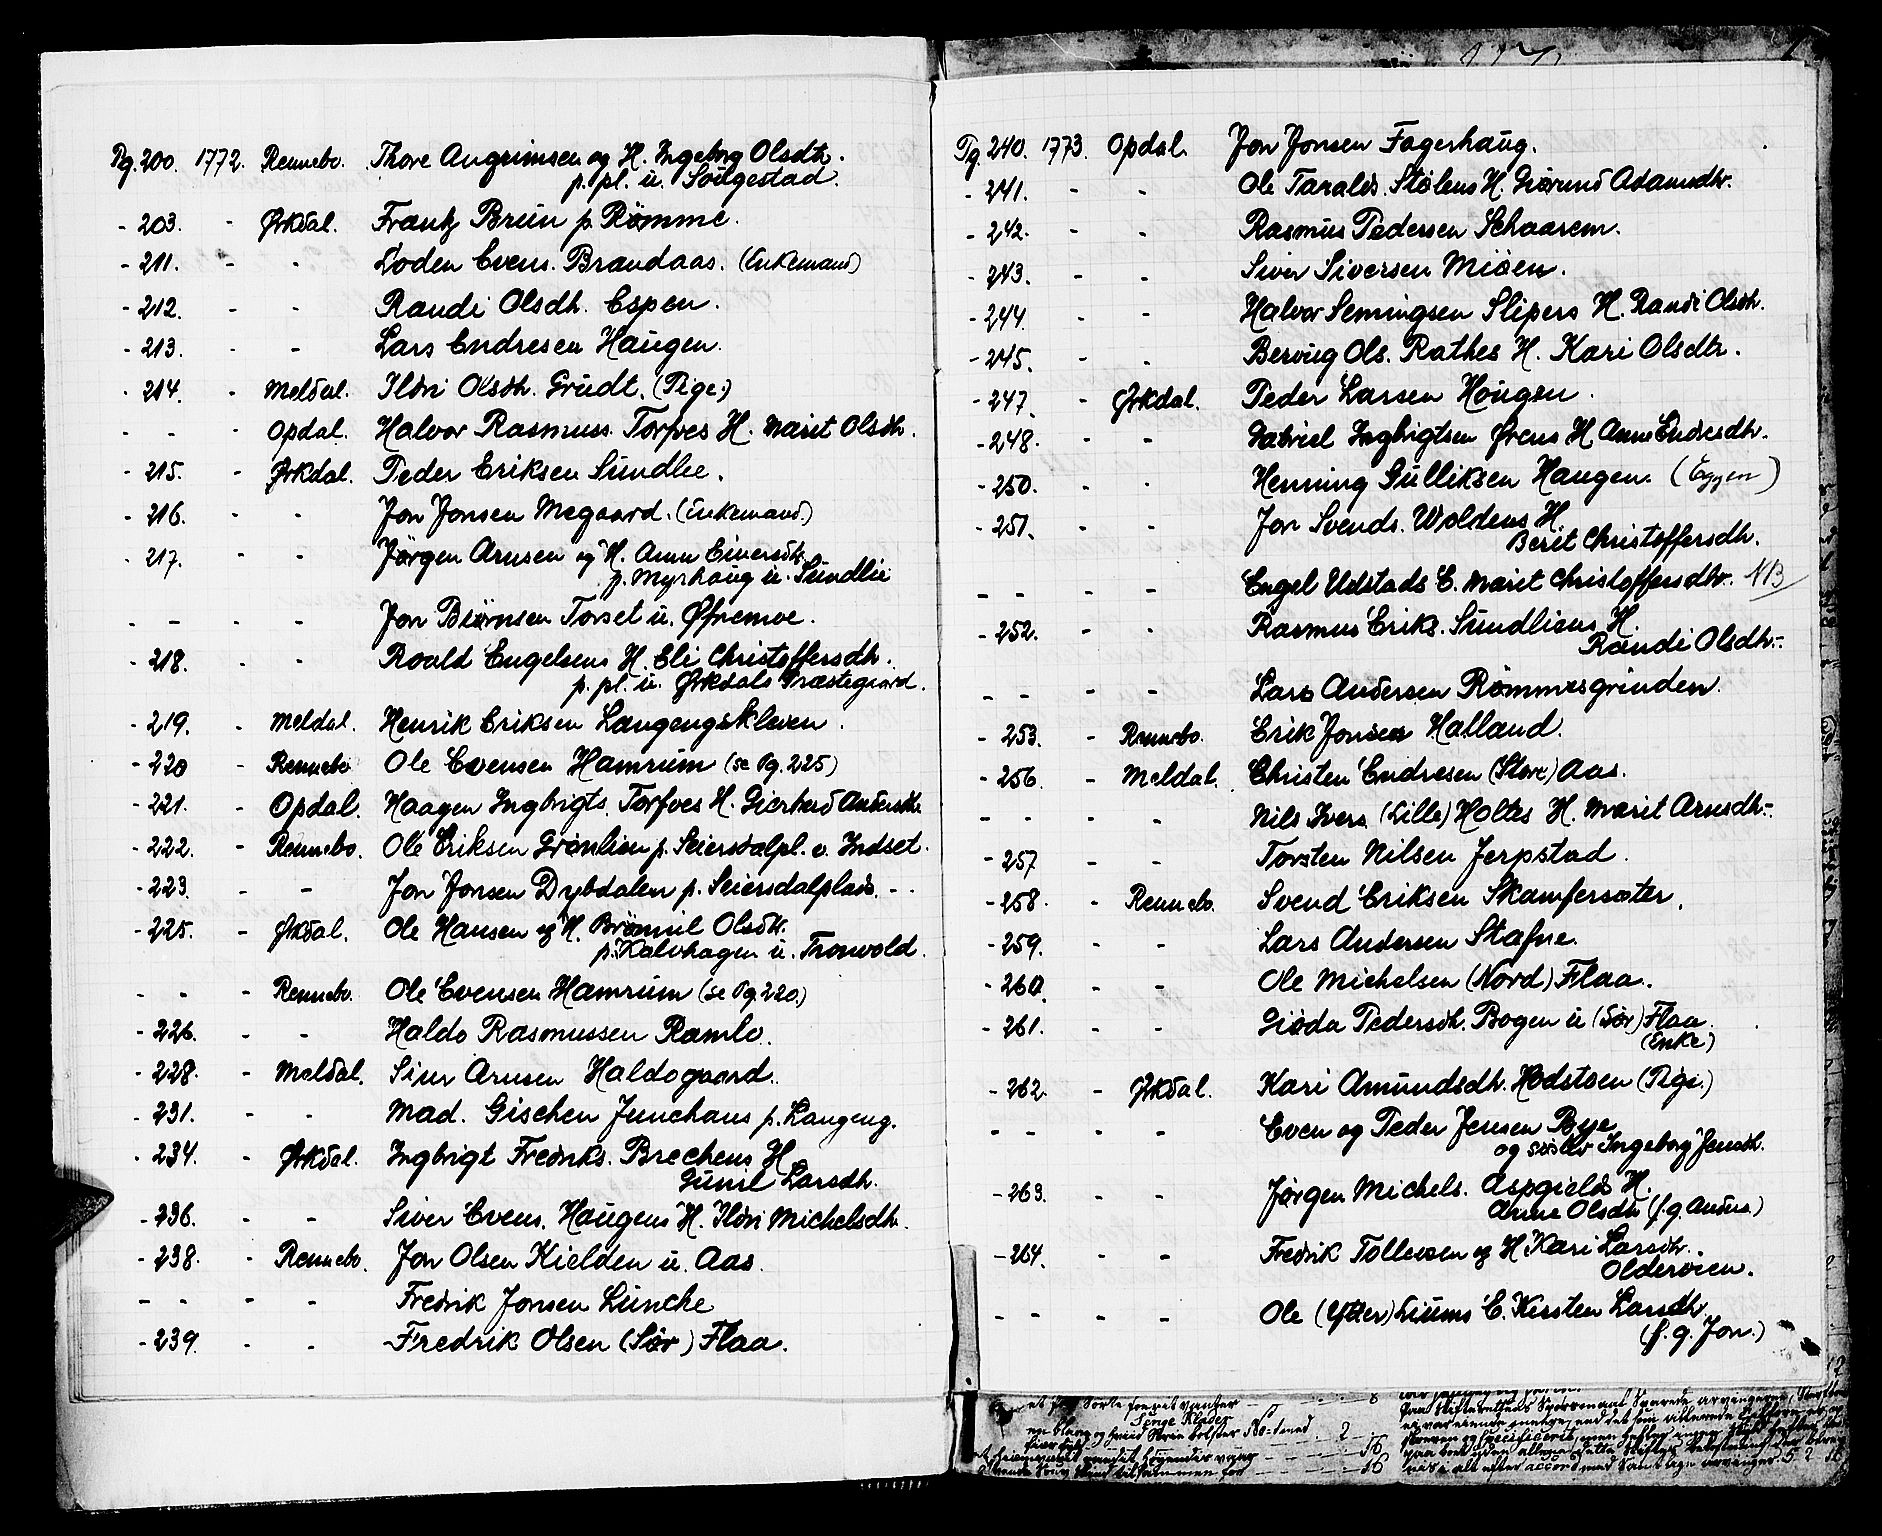 Pg. 200. 1772. Rennebo. Thore Angrimsen og H. Ingeborg Olsdtr.
p. pl. u. Sougestad.
- 203. - Ørkdal. Frantz Brun p. Rømme.
- 211. - - Loden Evens. Brandaas. (Enkemand)
- 212. - - Randi Olsdh. Espen.
- 213. - - Lars Endresen Haugen.
- 214. - Meldal. Ildri Olsdh. Grudt. (Pige.)
- - - Opdal. Halvor Rasmuss. Torfves H. Marit Olsdh.
- 215. - Ørkdal. Peder Eriksen Sundlie.
- 216. - - Jon Jonsen Megaard. (Enkemand.)
- 217. - - Jørgen Arnsen og H. Anne Einersdtr.
p. Myrhaug u. Sundlie
- - - - Jon Biørnsen Torset u. Øfremoe.
- 218. - - Roald Engelsens H. Eli Christoffersdh.
p. pl. u. Ørkdals Præstegaard.
- 219. - Meldal. Henrik Eriksen Langengskleven.
- 220 - Rennebo Ole Evensen Hamrum (se Pg. 225)
- 221. - Opdal. Haagen Ingbrigts. Torfves H. Gierterud Andersdtr.
- 222. - Rennebo. Ole Eriksen Grønlien p. Seiersdalpl. v. Indset.
- 223. - - Jon Jonsen Dybdalen p. Seiersdalplads. - -
- 225. - Ørkdal. Ole Hansen og H. Brønnil Olsdtr.
p. Kalvhagen u. Tronvold.
- - - Rennebo. Ole Evensen Hamrum (se Pg. 220.)
- 226. - - Haldo Rasmussen Ramlo.
- 228. - Meldal. Siur Arnsen Haldogaard.
- 231. - - Mad. Gischen Junchaus p. Langeng.
- 234. - Ørkdal. Ingbrigt Fredriks. Brechens H.
Gunil Larsdh.
- 236. - - Siver Evens. Haugens H. Ildri Michelsdh.
- 238. - Rennebo. Jon Olsen Kielden u. Aas.
- - - - Fredrik Jonsen Lunche
- 239. - - Fredrik Olsen (Sør) Flaa.
Pg. 240. 1773. Opdal. Jon Jonsen Fagerhaug.
- 241. - - Ole Taralds. Stølens H. Giørund Adamsdtr.
- 242. - - Rasmus Pedersen Schaarem.
- 243. - - Siver Siversen Miøen.
- 244. - - Halvor Semingsen Slipers H. Randi Olsdh.
- 245. - - Berung Ols. Rathes H. Kari Olsdtr.
- 247. - Ørkdal. Peder Larsen Hougen.
- 248. - - Gabriel Ingbrigtsen Ørens H Anne Endresdh.
- 250. - - Henning Gulliksen Haugen. (Eggen)
- 251. - - Jon Svends. Woldens H.
Berit Christoffersdh.
- - - - Engel Udstads E. Marit Christoffersdtr. NB
- 252. - - Rasmus Eriks. Sundliens H.
Randi Olsdh.-
- - - - Lars Andersen Rømmesgrinden.
- 253. - Rennebo. Erik Jonsen Halland.
- 256. - Meldal. Christen Endresen (Store) Aas.
- - - - Nils Ivers. (Lille) Holtes H. Marit Arnsdh.-
- 257 - - Torsten Nilsen Jerpstad.
- 258. - Rennebo. Svend Eriksen Skamfersæter.
- 259. - - Lars Andersen Stafne.
- 260. - - Ole Michelsen (Nord) Flaa.
- 261. - - Giøda Pedersdh. Bogen u (Sør) Flaa.
(Enke)
- 262. - Ørkdal. Kari Amundsdh. Hodstoen (Pige.)
- - - - Even og Peder Jensen Bye
og søster Ingeborg Jensdh.
- 263. - - Jørgen Michels. Aspgields H.
Anne Olsdtr (f. g. Anders)
- 264. - - Fredrik Tollevsen og H Kari Larsdtr.
Oldervien.
- - - - Ole (Ytter) Liums E. Kirsten Larsdtr
(f. g. Jon.)